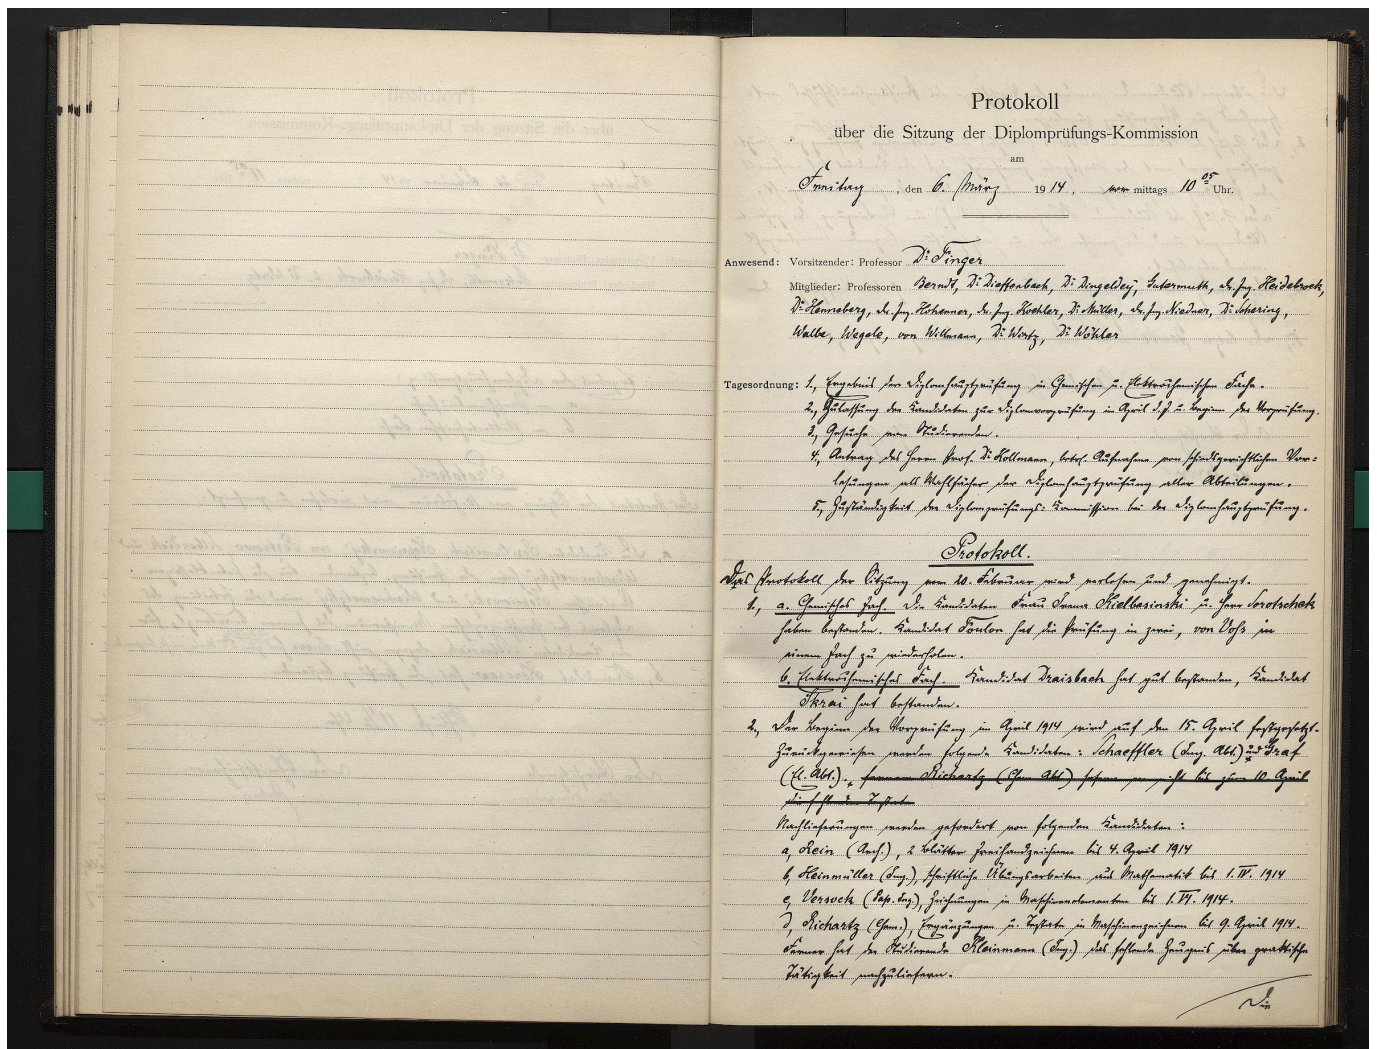 Protokoll
über die Sitzung der Diplomprüfungs-Kommission
am
Freitag, den 6. März 1914, vormittags 10 05 Uhr.
Anwesend: Vorsitzender: Professor Dr Finger
Mitglieder: Professoren Berndt, Dr Dieffenbach, Dr Dingeldey, Gutermuth, Dr. Ing. Heidebroek,
Dr Henneberg, Dr. Ing. Hohenner, Dr. Ing. Koehler, Dr Müller, Dr. Ing. Niedner, Dr Schering,
Walbe, Wegele, von Willmann, Dr Wirtz, Dr Wöhler
Tagesordnung: 1., Ergebnis der Diplomhauptprüfung im Chemischen u. Elektrochemischen Fache.
2., Zulassung der Kandidaten zur Diplomvorprüfung im April d. J. u. Beginn der Vorprüfung.
3., Gesuche von Studierenden.
4., Antrag des Herrn Prof. Dr Kollmann, betr. Aufnahme von schiedsgerichtlichen Vor-
lesungen als Wahlfächer der Diplomhauptprüfung aller Abteilungen.
5., Zuständigkeit der Diplomprüfungs-Kommission bei der Diplomhauptprüfung.
Protokoll.
Das Protokoll der Sitzung vom 20. Februar wird verlesen und genehmigt.
1., a. Chemisches Fach. Die Kandidaten Frau Irena Kielbasinski u. Herr Sorotschek
haben bestanden. Kandidat Foulon hat die Prüfung in zwei, von Vohs in
einem Fach zu wiederholen.
b. Elektrochemisches Fach. Kandidat Draisbach hat gut bestanden, Kandidat
Skrai hat bestanden.
2., Der Beginn der Vorprüfung im April 1914 wird auf den 15. April festgesetzt.
Zurückgewiesen werden folgende Kandidaten: Schaeffler (Ing. Abt.) und Graf
(El. Abt.)., ferner Richartz (Chem Abt) sofern er nicht bis zum 10. April
die fehlenden Testate
Nachlieferungen werden gefordert von folgenden Kandidaten:
a, Rein (Arch.), 2 Blätter Freihandzeichnen bis 4. April 1914
b, Heinmüller (Ing.), schriftliche Übungsarbeiten aus Mathematik bis 1. IV. 1914
c, Versock (Pap. Ing.), Zeichnungen in Maschinenelementen bis 1. VI. 1914.
d, Richartz (Chem.), Ergänzungen u. Testate in Maschinenzeichnen bis 9. April 1914.
Ferner hat der Studierende Kleinmann (Ing.) das fehlende Zeugnis über praktische
Tätigkeit nachzuliefern.
Die